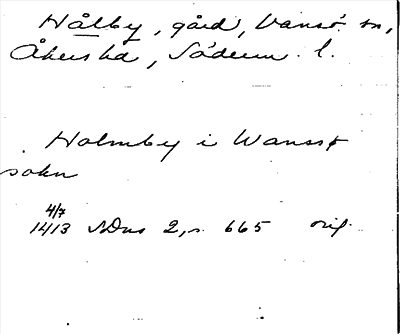 Hålby, gård, Vansö sn,
Åkers hd, Söderm. l.
Holmby i Wansø
sokn
4/7
1413 SDns 2, s. 665 orig.